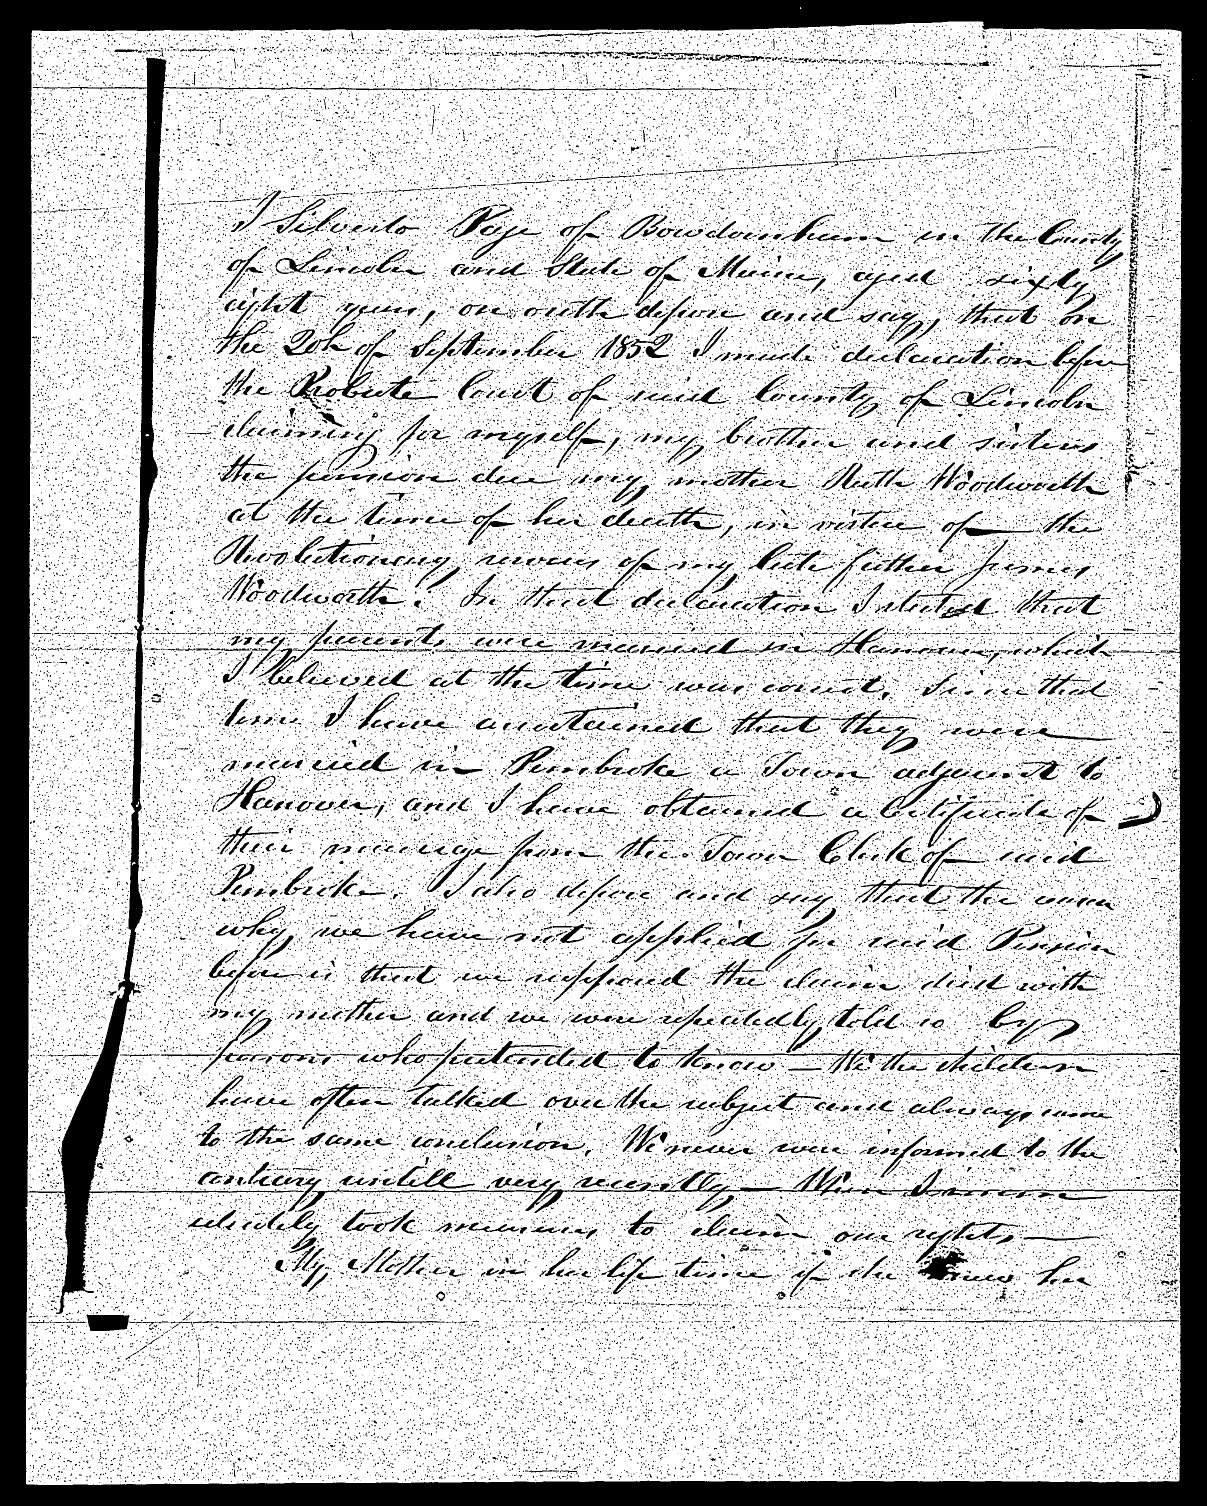 I Silverto Page of Bowdoinham in the County
of Lincoln and State of Maine, aged sixty
eight years, on oath depose and say, that on
the 20th of September 1852 I made declaration before
the Probate Court of said County of Lincoln
claiming for myself, my brother and sisters
the pension due my mother Ruth Woodworth
at the time of her death, in virtue of the
Revolutionary services of my late father James
Woodworth. In that declaration I stated that
my parents were married in Hanover, which
I believed at the time was correct. Since that
time I have ascertained that they were
married in Pembroke a Town adjacent to
Hanover, and I have obtained a Certificate of
their marriage from the Town Clerk of said
Pembroke. I also depose and say that the reason
why we have not applied for said Pension
before is that we supposed the claim died with
my mother and we were repeatedly told so by
persons who pretended to know — We the children
have often talked over the subject and always came
to the same conclusion. We never were informed to the
contrary untill very recently — When I imme
diately took measures to claim our rights —
My Mother in her life time if she knew her